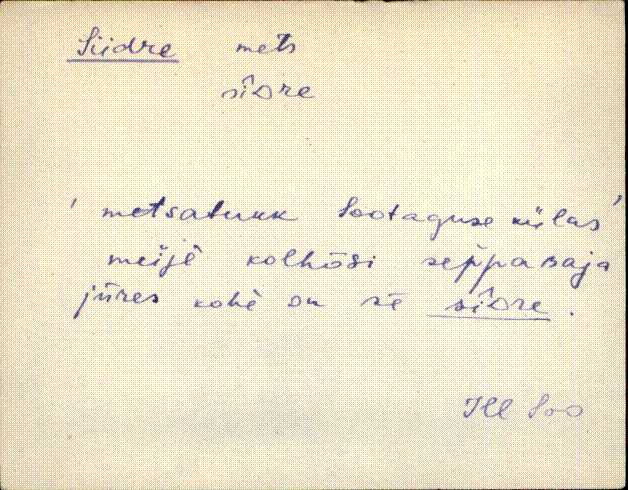 Siidre mets
sîDre
' metsatukk Sootaguse külas '
meijè kolhōsi sep̀paBaja
jūres kohè on sē sîDre.
Ill Soo